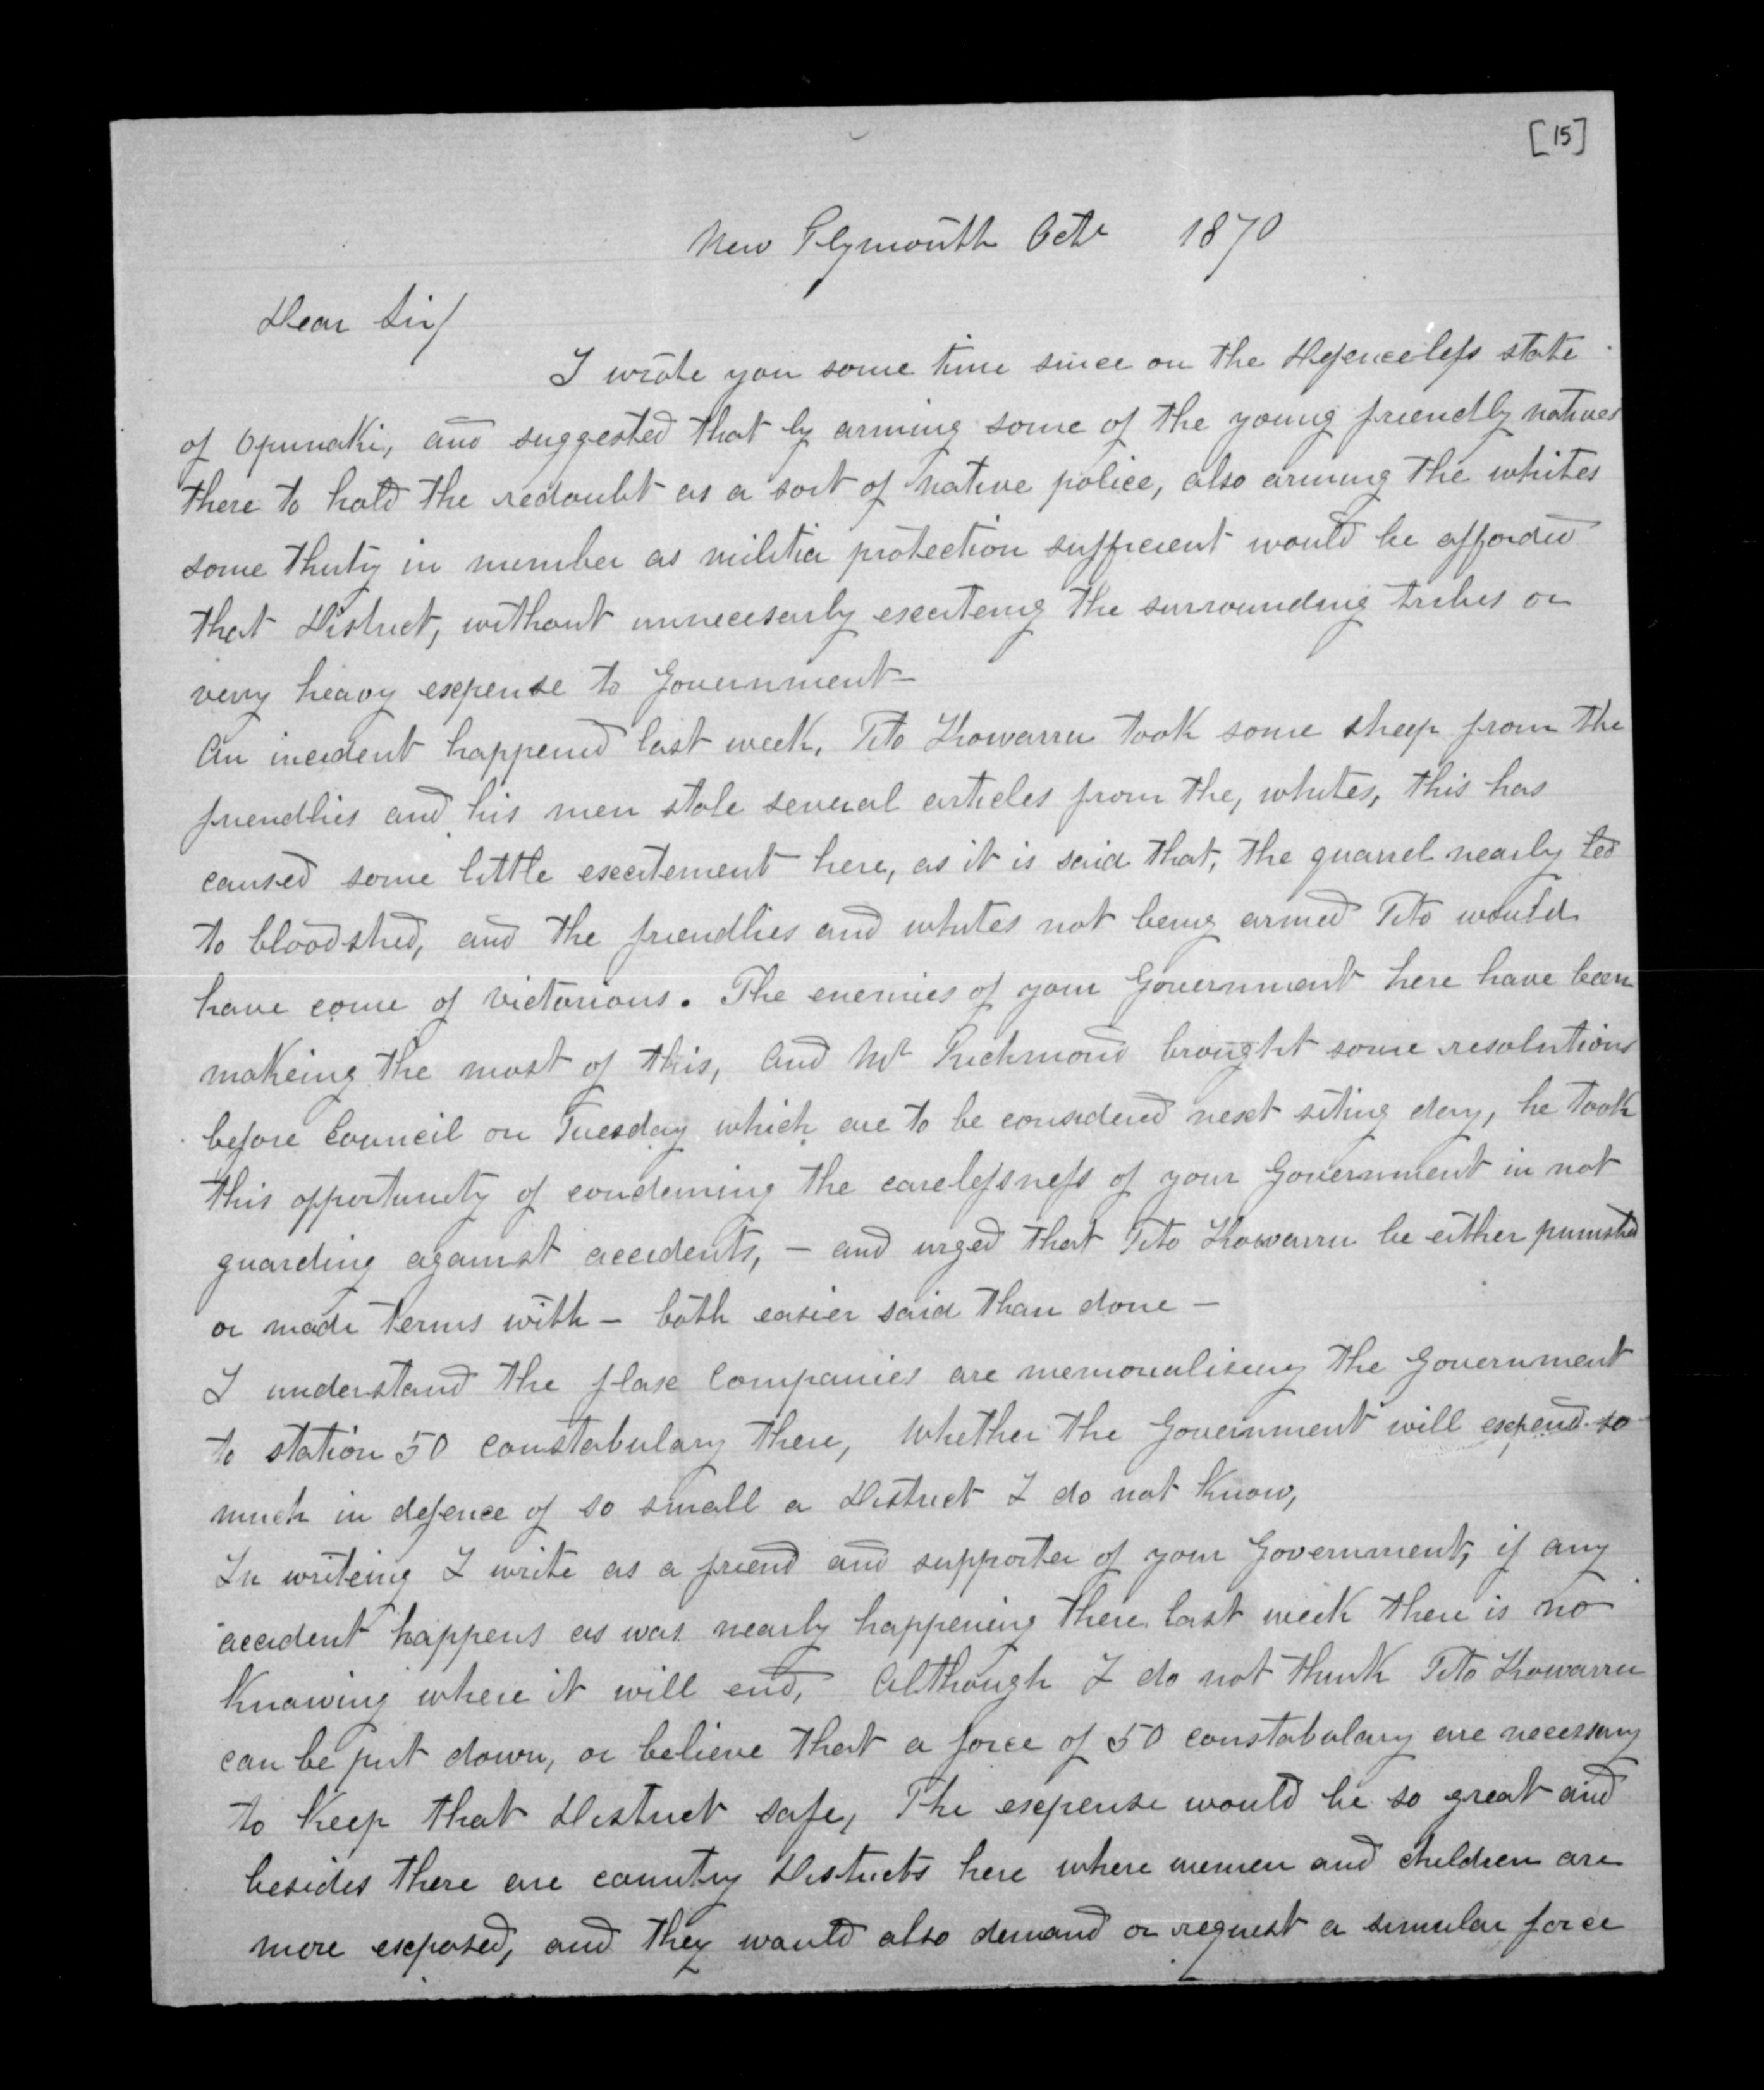 [15]
New Plymouth Octr 1870
Dear Sir/
I wrote you some time since on the Defenceless state
of Opunaki, and suggested that by arming some of the young friendly natives
there to hold the redoubt as a sort of native police, also arming the whites
some thirty in number as militia protection sufficient would be afforded
that District, without unnecesarly exciteing the surrounding tribes or
very heavy expense to Government—
An incident happened last week, Tito Kowarru took some sheep from the
friendlies and his men stole several articles from the, whites, this has
caused some little excitement here, as it is said that, the quarrel nearly led
to bloodshed, and the friendlies and whites not being armed Tito would
have come of victorious. The enemies of your Government here have been
makeing the most of this, and Mr Richmond brought some resolutions
before Council on Tuesday which are to be considered next siting day, he took
this opportunity of condeming the carelessness of your Government in not
guarding against accidents, – and urged that Tito Kowarru be either punished
or made terms with – both easier said than done –
I understand the flax Companies are memorialiseing the Government
to station 50 constabulary there, whether the Government will expend so
much in defence of so small a District I do not know,
In writeing I write as a friend and supporter of your Government, if any
accident happens as was nearly happening there last week there is no
knowing where it will end, Although I do not think Tito Kowarru
can be put down, or believe that a force of 50 constabulary are necessary
to keep that District safe, The expense would be so great and
besides there are country Districts here where wemen and children are
more exposed, and they would also demand or request a simular force